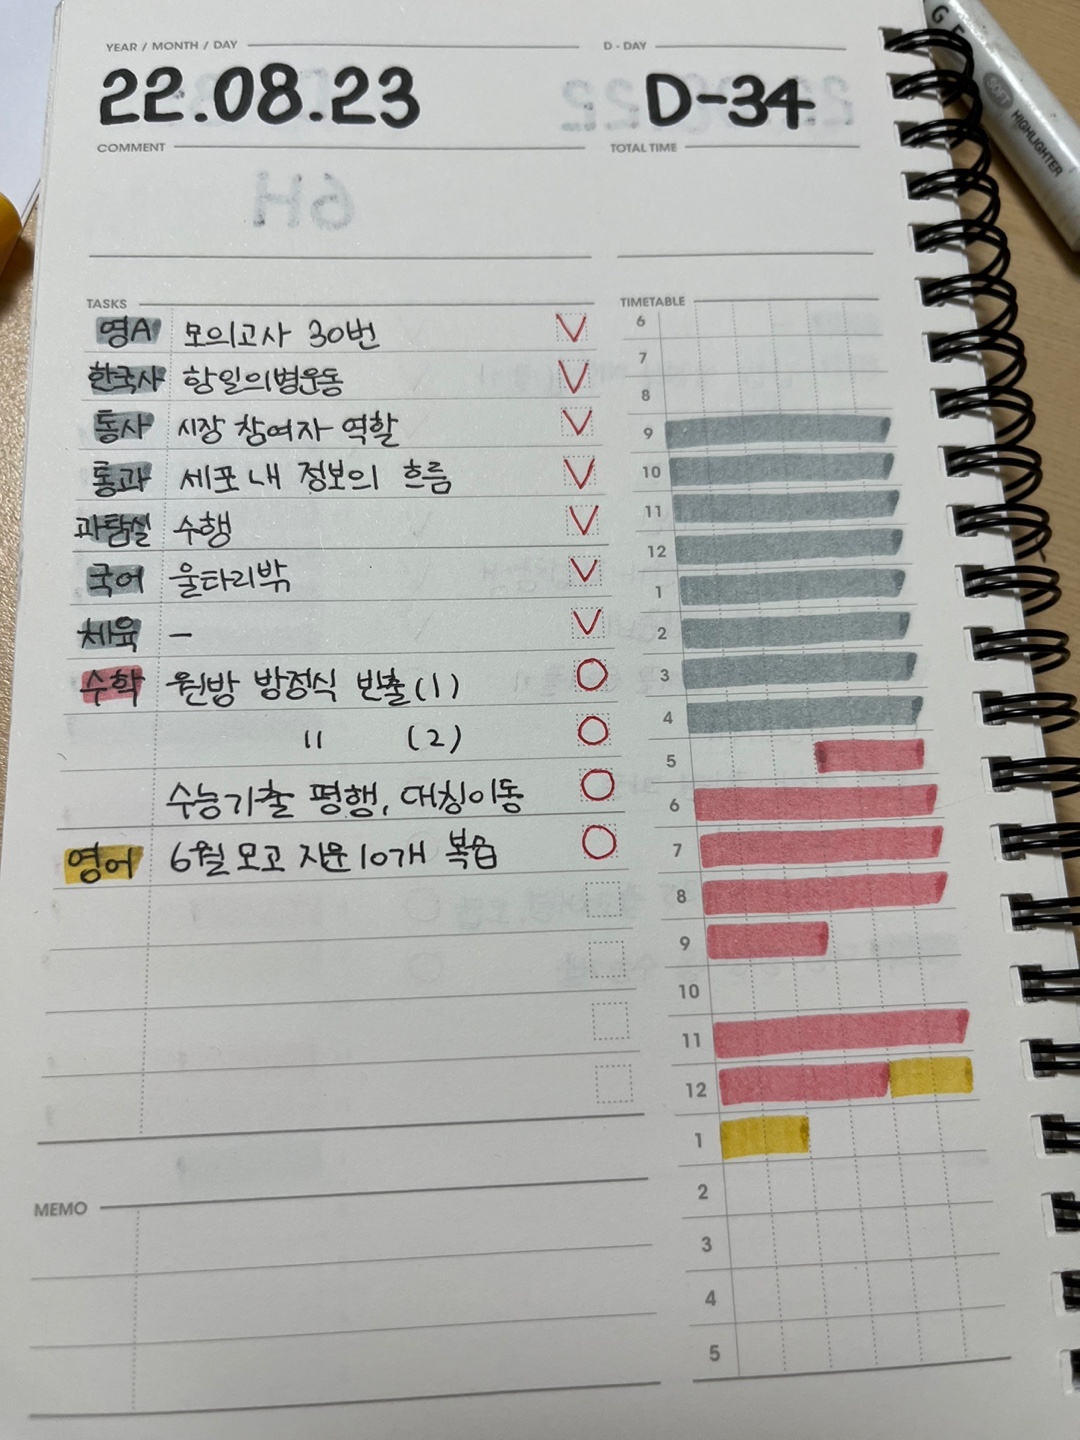 YEAR / MONTH / DAY
D - DAY
22.08.23
D-34
COMMENT
TOTAL TIME
6H
TASKS
TIMETABLE
영A 모의고사 30번
한국사 항일의병운동
통사 시장 참여자 역할
통과 세포 내 정보의 흐름
과탐실 수행
국어 울타리밖
체육 —
수학 원방 방정식 빈출(1)
〃 (2)
수능기출 평행, 대칭이동
영어 6월모고 지운 10개 복습
6
7
8
9
10
11
12
1
2
3
4
5
6
7
8
9
10
11
12
1
2
3
4
5
MEMO
SOFT HIGHLIGHTER